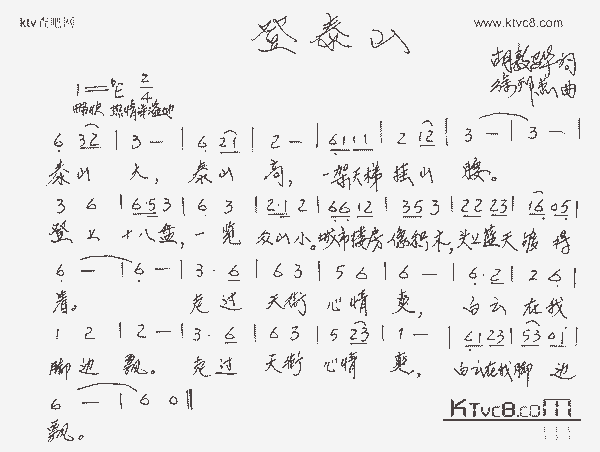 ktv酷吧网 www.ktvc8.com
登泰山
胡敦骅 词
1=♭E 2/4
曲
明快 热情洋溢地
6 32 | 3 - | 6 21 | 2 - | 6111 | 2 12 | 3 - | 3 - |
泰山 大, 泰山 高, 一架天梯挂山 腰。
3 6 | 6·53 | 6 3 | 2·1 2 | 66 12 | 35 3 | 22 23 | 16 05 |
登上 十八盘, 一览 众山小。城市楼房像积木,头上蓝天 得
6 - | 6 - | 3· 6 | 6 3 | 5 6 | 6 - | 6·2 | 2 6 |
着。 走过 天街 心情 爽, 白云在我
1 2 | 2 - | 3· 6 | 6 3 | 5 23 | 1 - | 61 23 | 53 01 |
脚边 飘。 走过 天街 心情 爽, 白云在我脚 边
6 - | 6 0 ‖
飘。
KTvc8.com